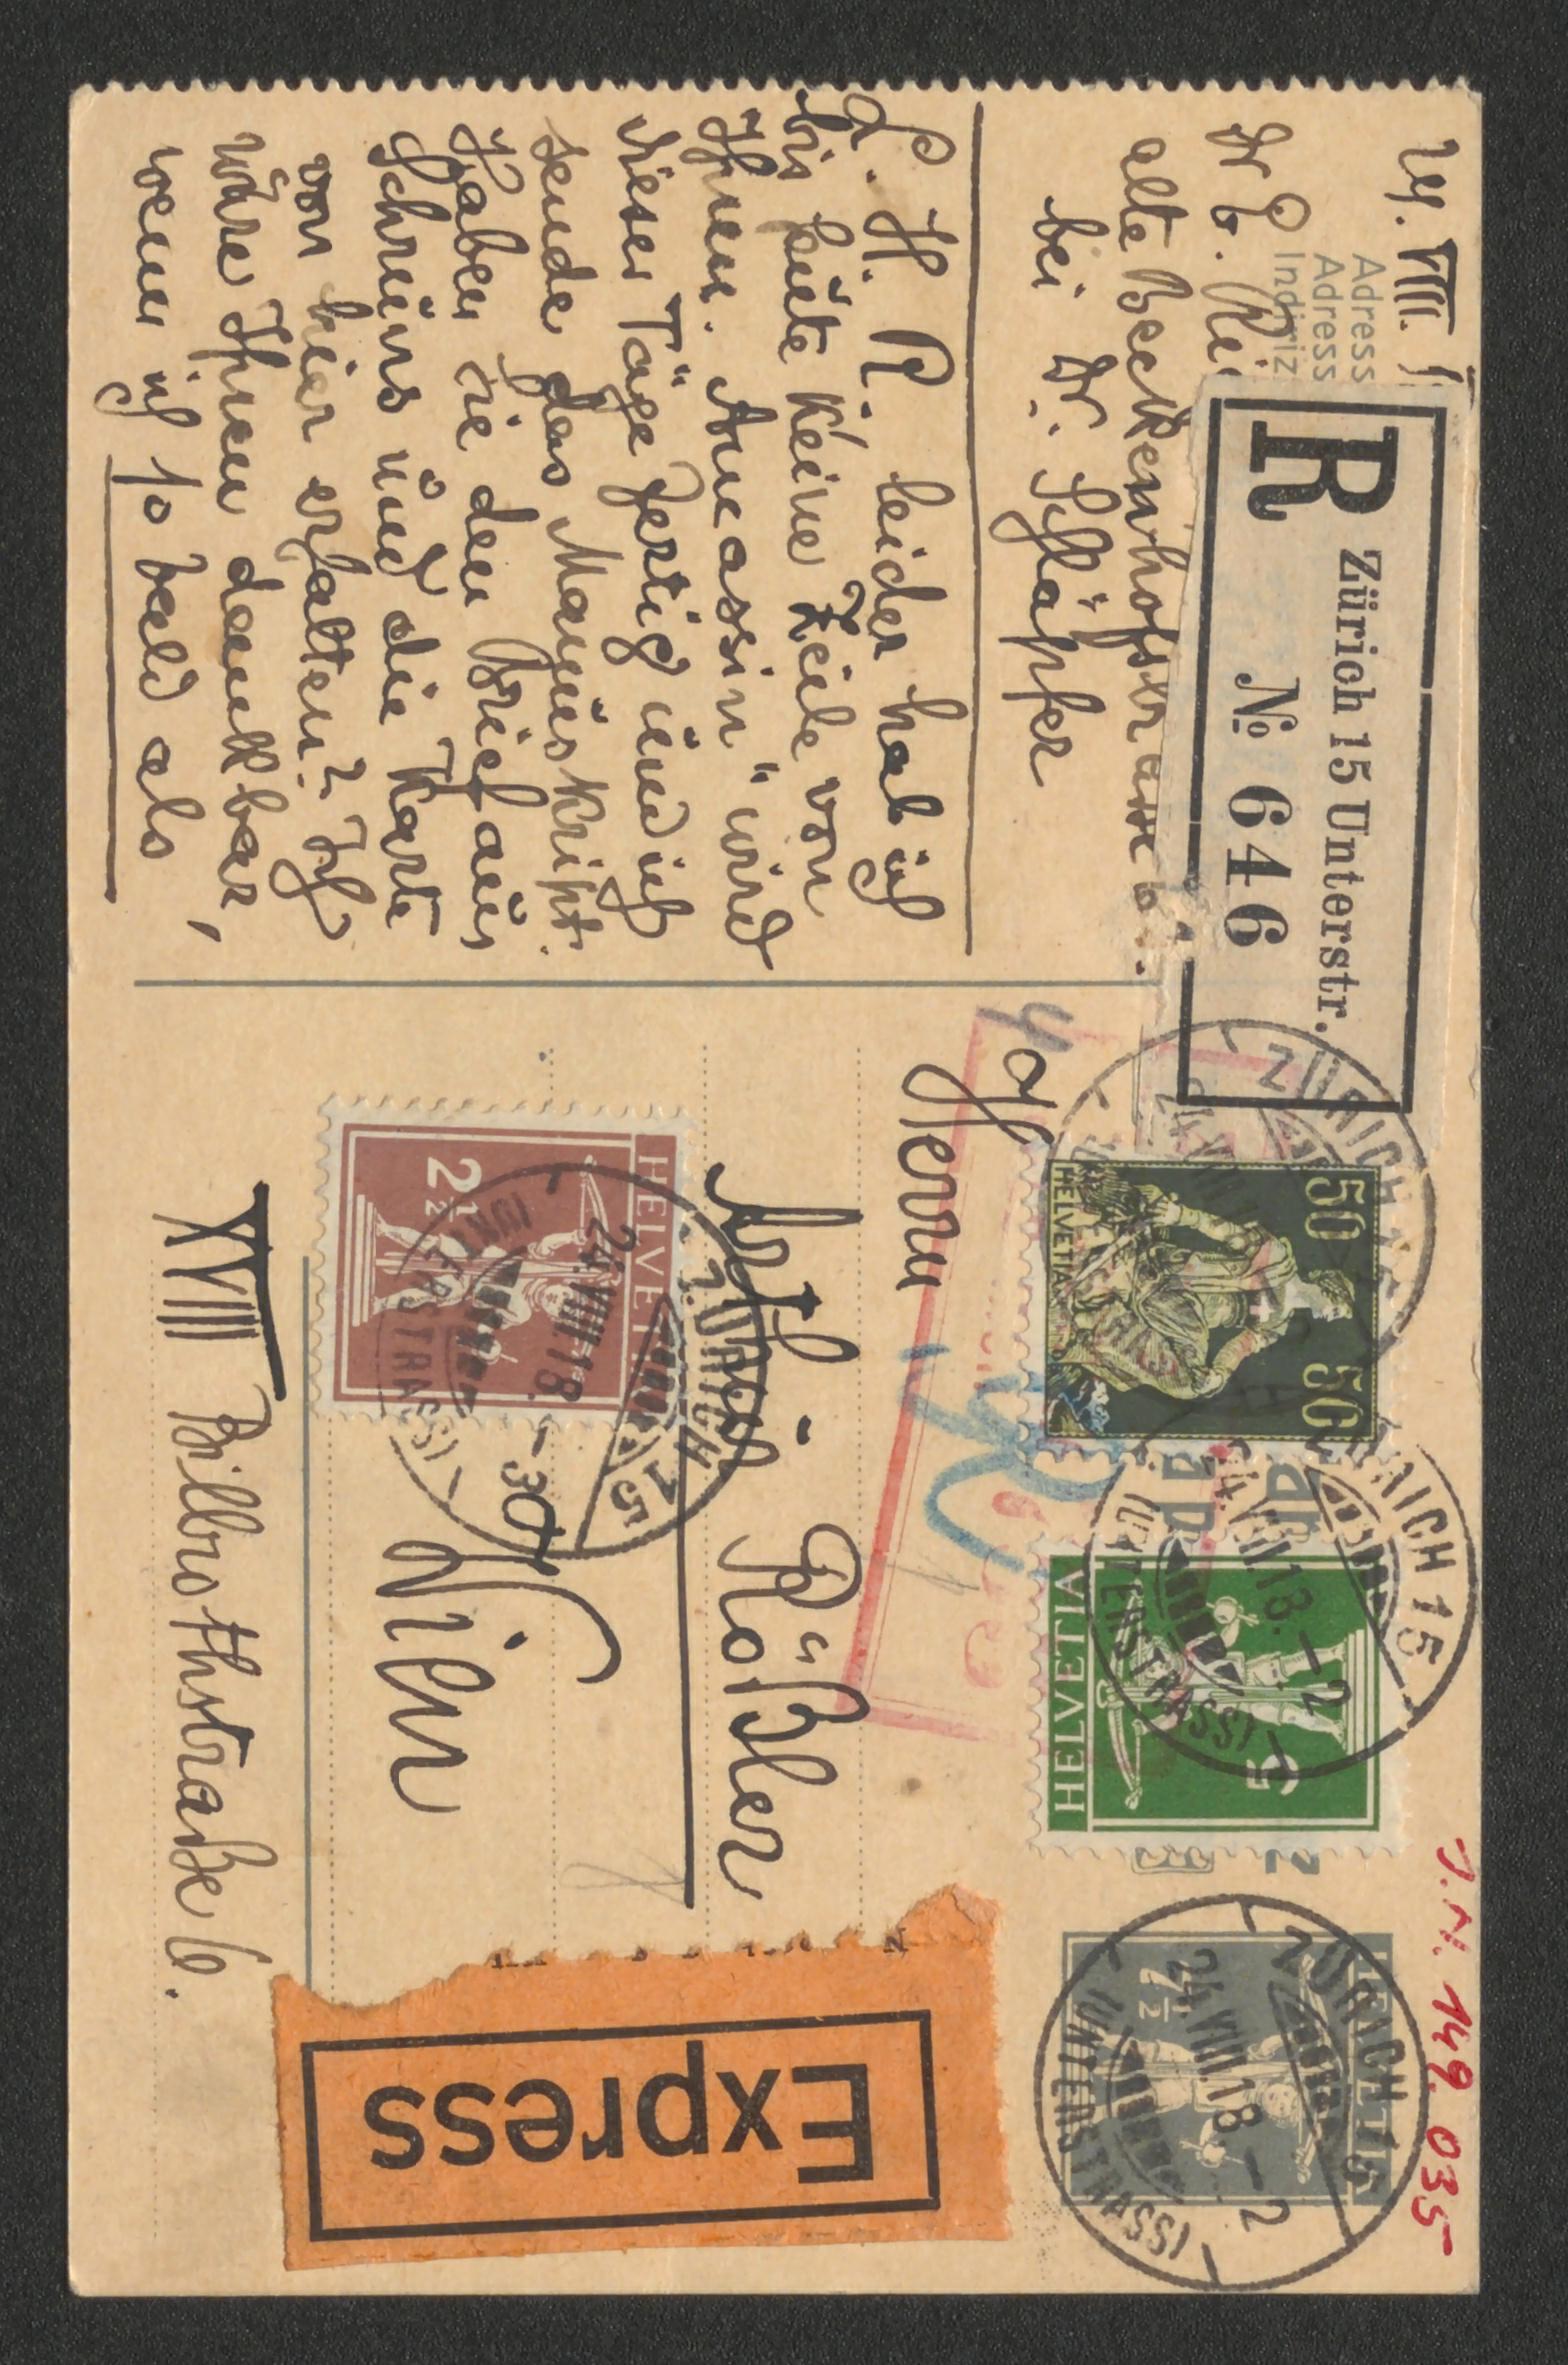 24. VIII.
Adress
Adress
Indiriz
Dr E.
alte Beckenhofstrasse
bei Dr. Schläpfer
R
Zürich 15 Unterstr.
№ 646
L. H. R. leider hab ich
bis heute keine Zeile von
Ihnen. Anassin" wird
dieser Tage fertig und ich
sende das Manuskript.
Haben sie den Brief aus
Schruns und die Karte
von hier erhalten? Ich
wäre Ihnen dankbar,
wenn ich so bald als
Herrn
Arthur Rößler
Wien
XVIII Billrothstraße 6.
50 50
HELVETIA
HELVETIA
5
ZÜRICH 15
24.VIII.18. – 2
(UNTERSTRASS)
HELVETIA
2½
ZÜRICH 15
24.VIII.18. –
(UNTERSTRASS)
7½
ZÜRICH 15
24.VIII.18. – 2
(UNTERSTRASS)
Express
J.N. 149.035